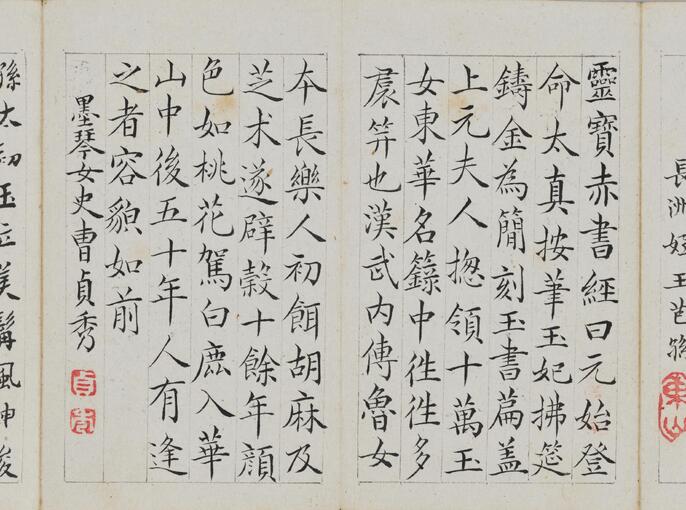 長洲王芑孫
靈寶赤書經曰元始登
命太真按筆玉妃拂筵
鑄金為簡刻玉書篇盖
上元夫人揔領十萬玉
女東華名籙中徃徃多
裠笄也漢武內傳魯女
夲長樂人初餌胡麻及
芝术遂辟穀十餘年顔
色如桃花駕白鹿入華
山中後五十年人有逢
之者容貌如前
墨琴女史曹貞秀
貞
秀
孫太初玉立美髯風神俊